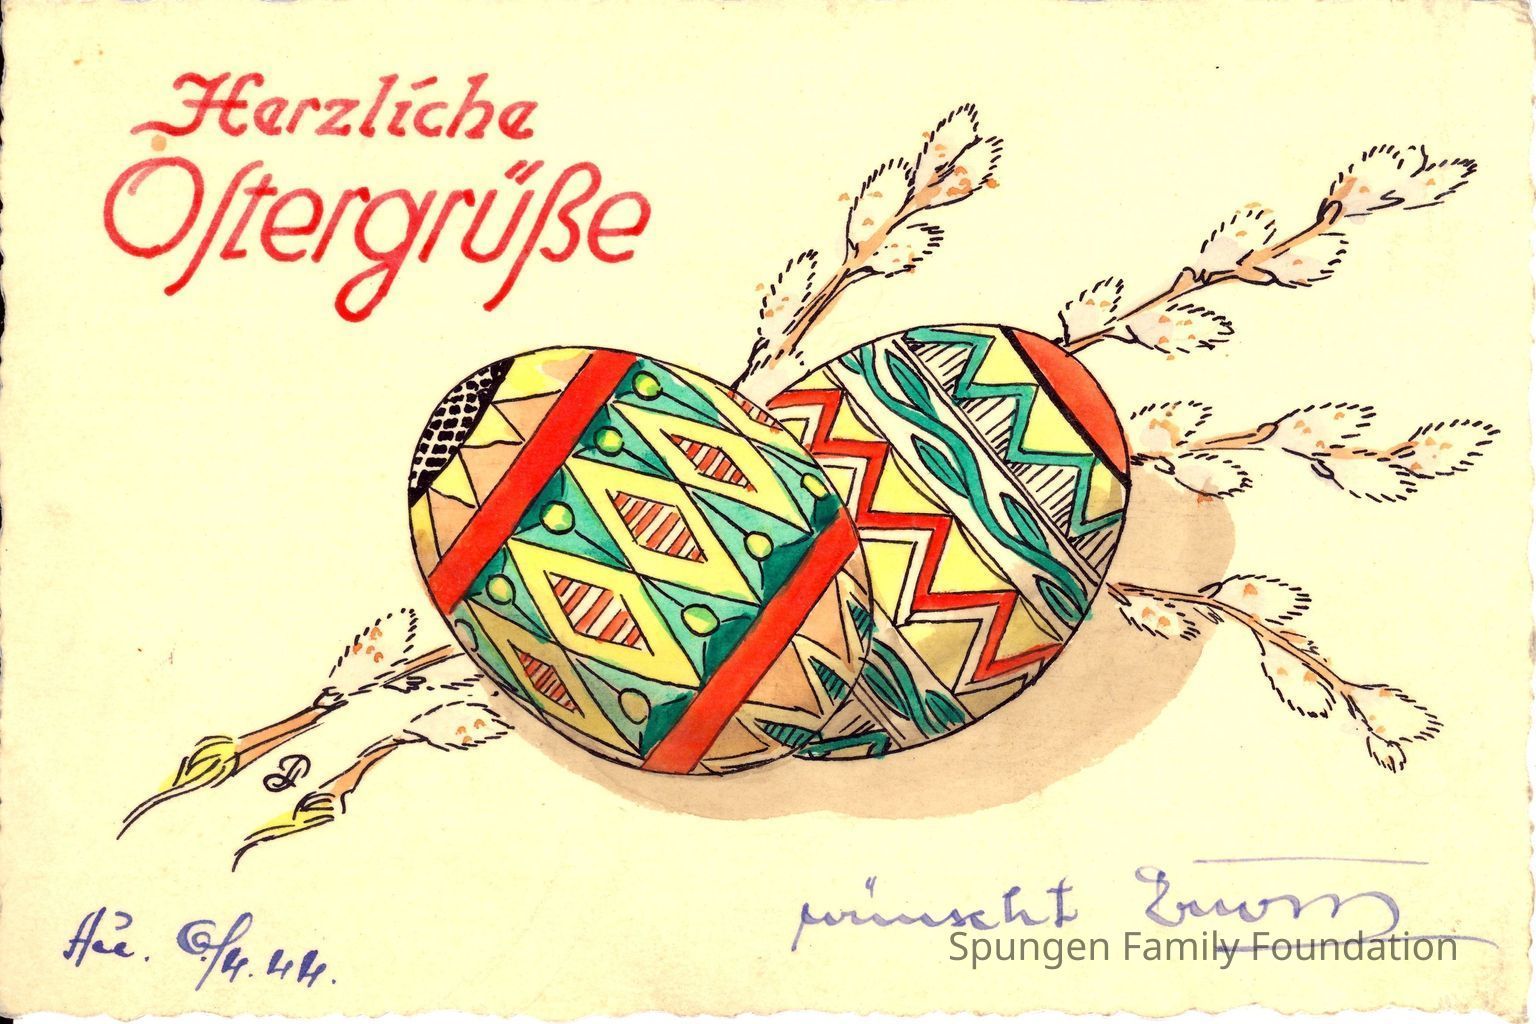 Herzliche
Oſtergrüße
6/4.44.
wünscht
Spungen Family Foundation